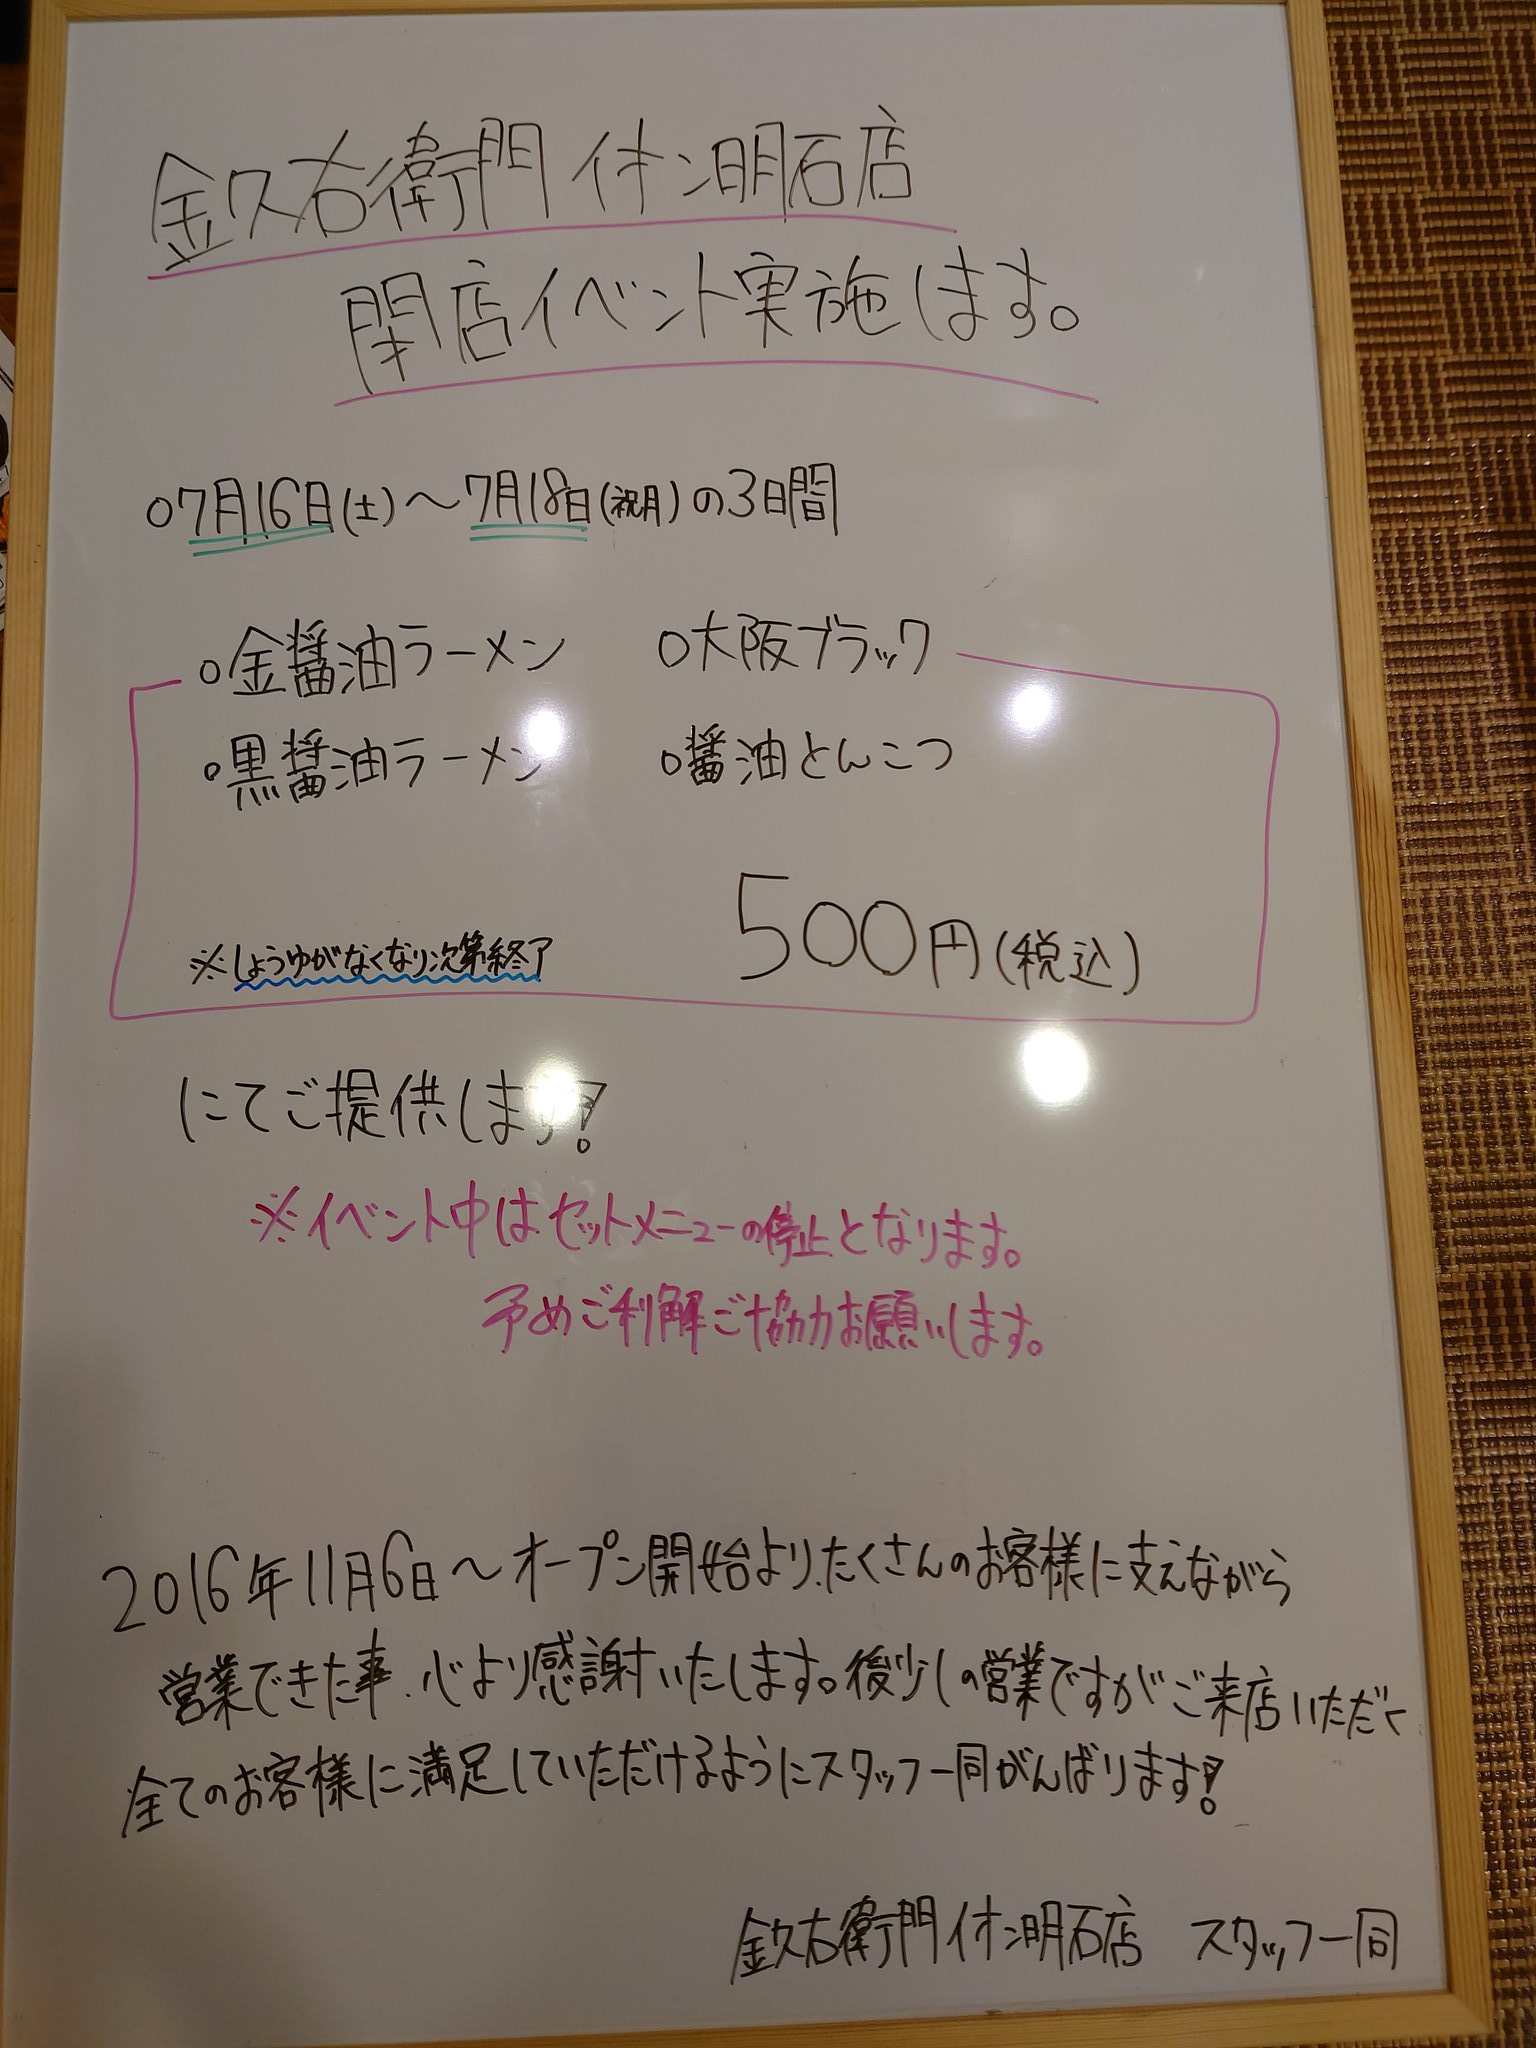 金久右衛門イオン明石店
閉店イベント実施します。
○7月16日(土)～7月18日(祝月)の3日間
○金醤油ラーメン ○大阪ブラック
○黒醤油ラーメン ○醤油とんこつ
※しょうゆがなくなり次第終了 500円(税込)
にてご提供します!
※イベント中はセットメニューの停止となります。
予めご利解ご協力お願いします。
2016年11月6日～オープン開始より、たくさんのお客様に支えながら
営業できた事、心より感謝いたします。後少しの営業ですがご来店いただく
全てのお客様に満足していただけるようにスタッフ一同がんばります!
金久右衛門イオン明石店 スタッフ一同